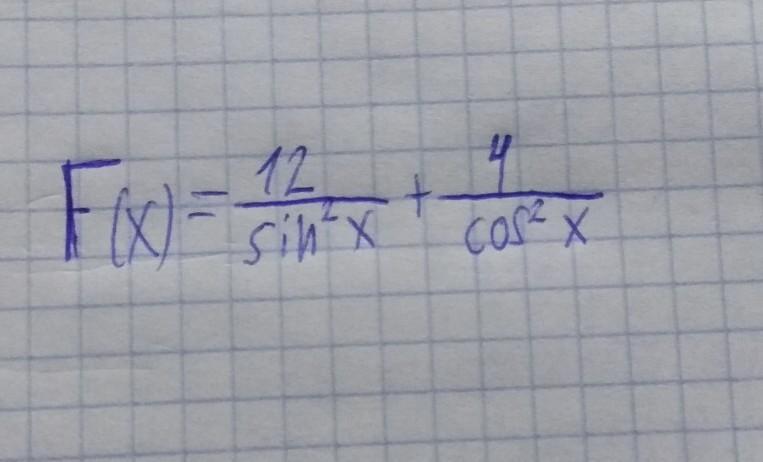 F(x) = 12/sin²x + 4/cos²x